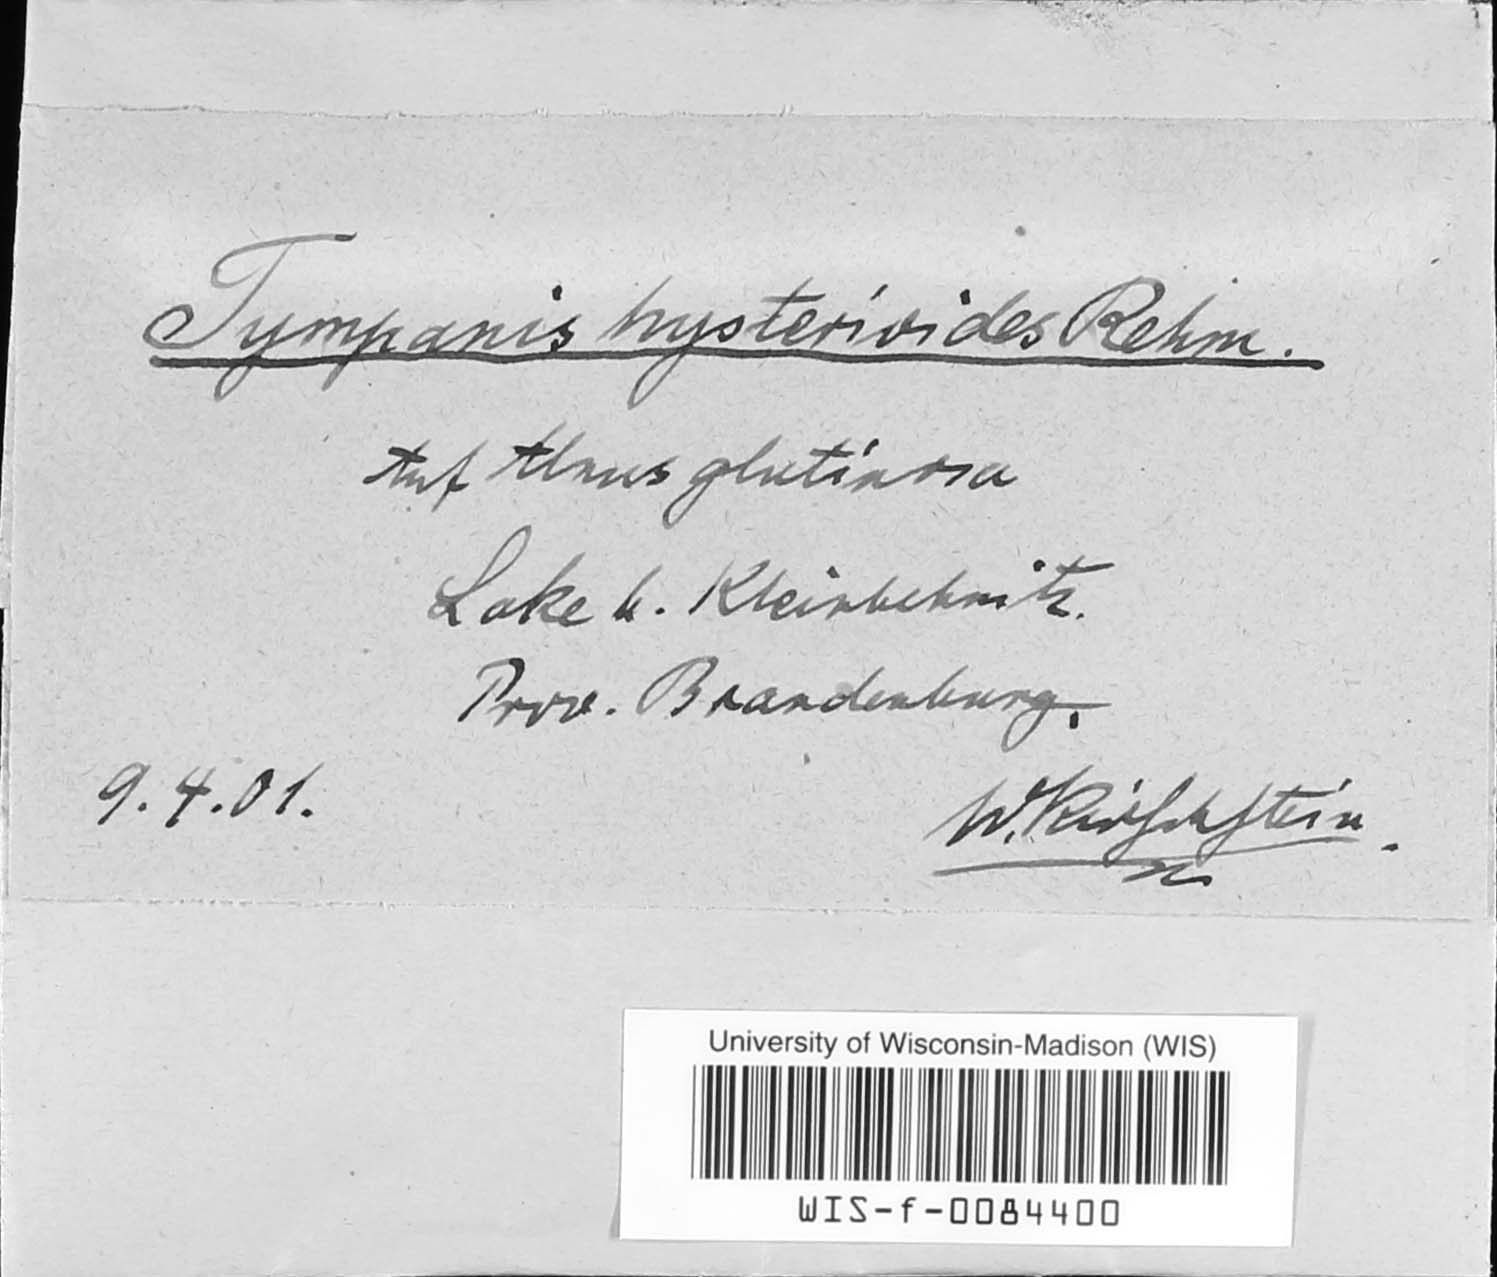 Tympanis hysterioides Rehm.
Auf Alnus glutinosa
Lake b. Kleinbehnitz.
Prov. Brandenburg.
9.4.01.
W. Kirschstein.
University of Wisconsin-Madison (WIS)
WIS-f-0084400